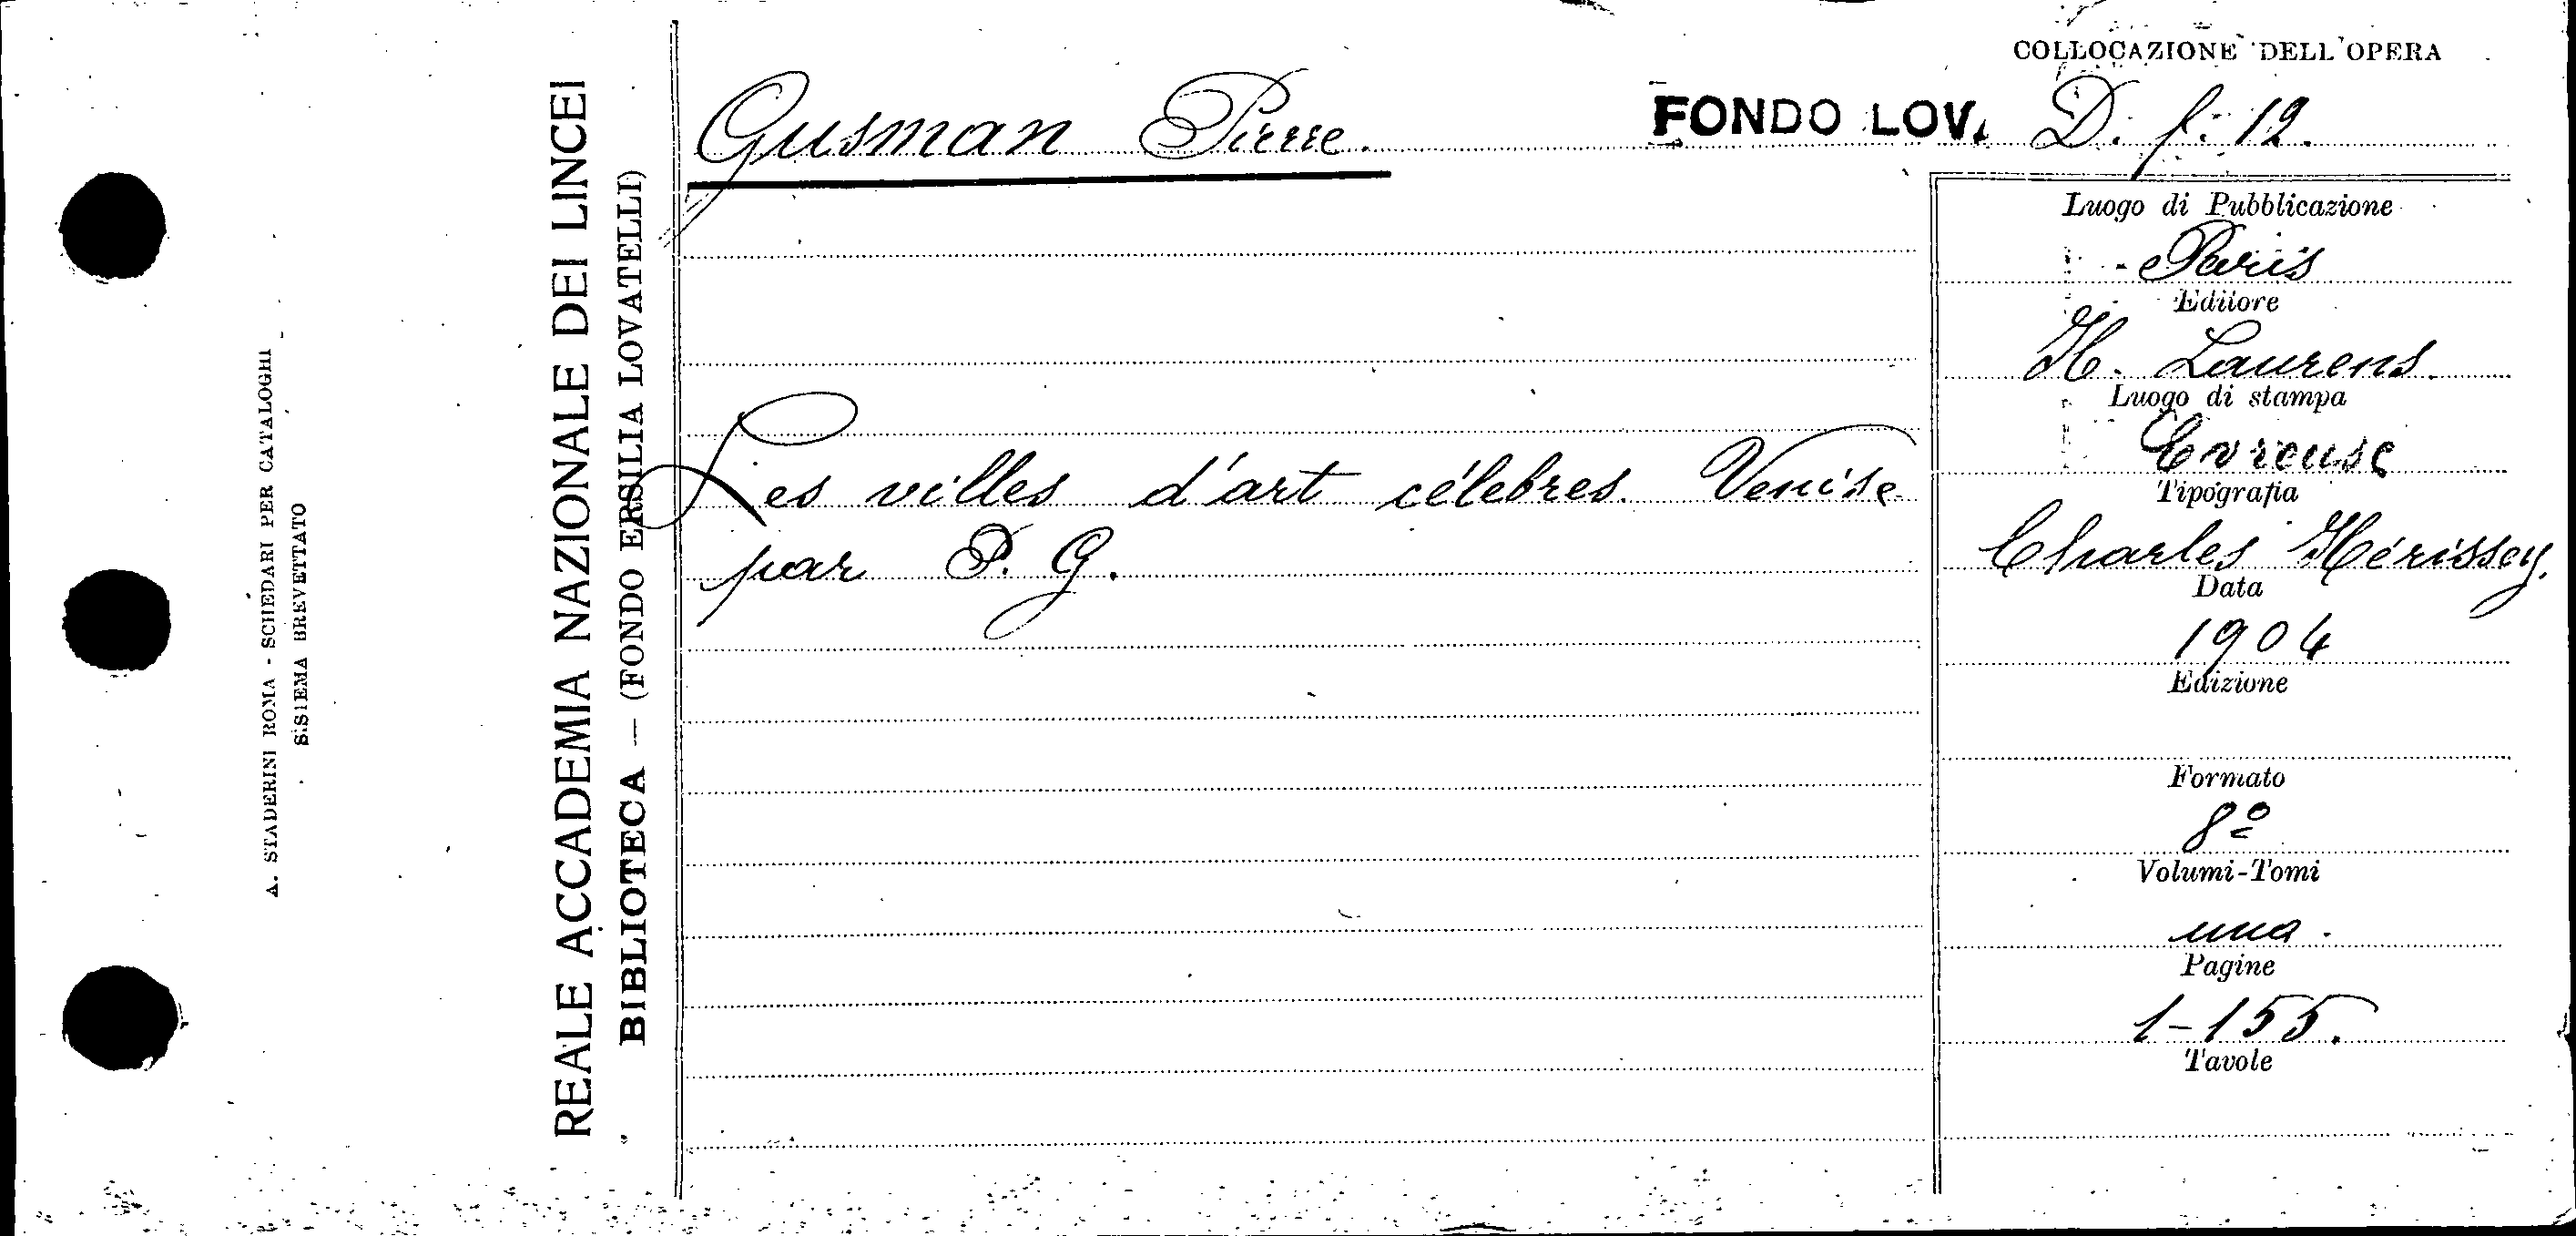 A. STADERINI ROMA - SCHEDARI PER CATALOGHI
SISTEMA BREVETTATO
REALE ACCADEMIA NAZIONALE DEI LINCEI
BIBLIOTECA — (FONDO ERSILIA LOVATELLI)
COLLOCAZIONE DELL'OPERA
Gusman Pierre. FONDO LOV. D. f. 12.
Luogo di Pubblicazione
Paris
Editore
H. Laurens.
Luogo di stampa
Evreuse
Tipografia
Charles Hérissey.
Data
1904
Edizione
Formato
8º
Volumi-Tomi
uno.
Pagine
1-155.
Tavole
Les villes d'art célebres. Venise
par P. G.